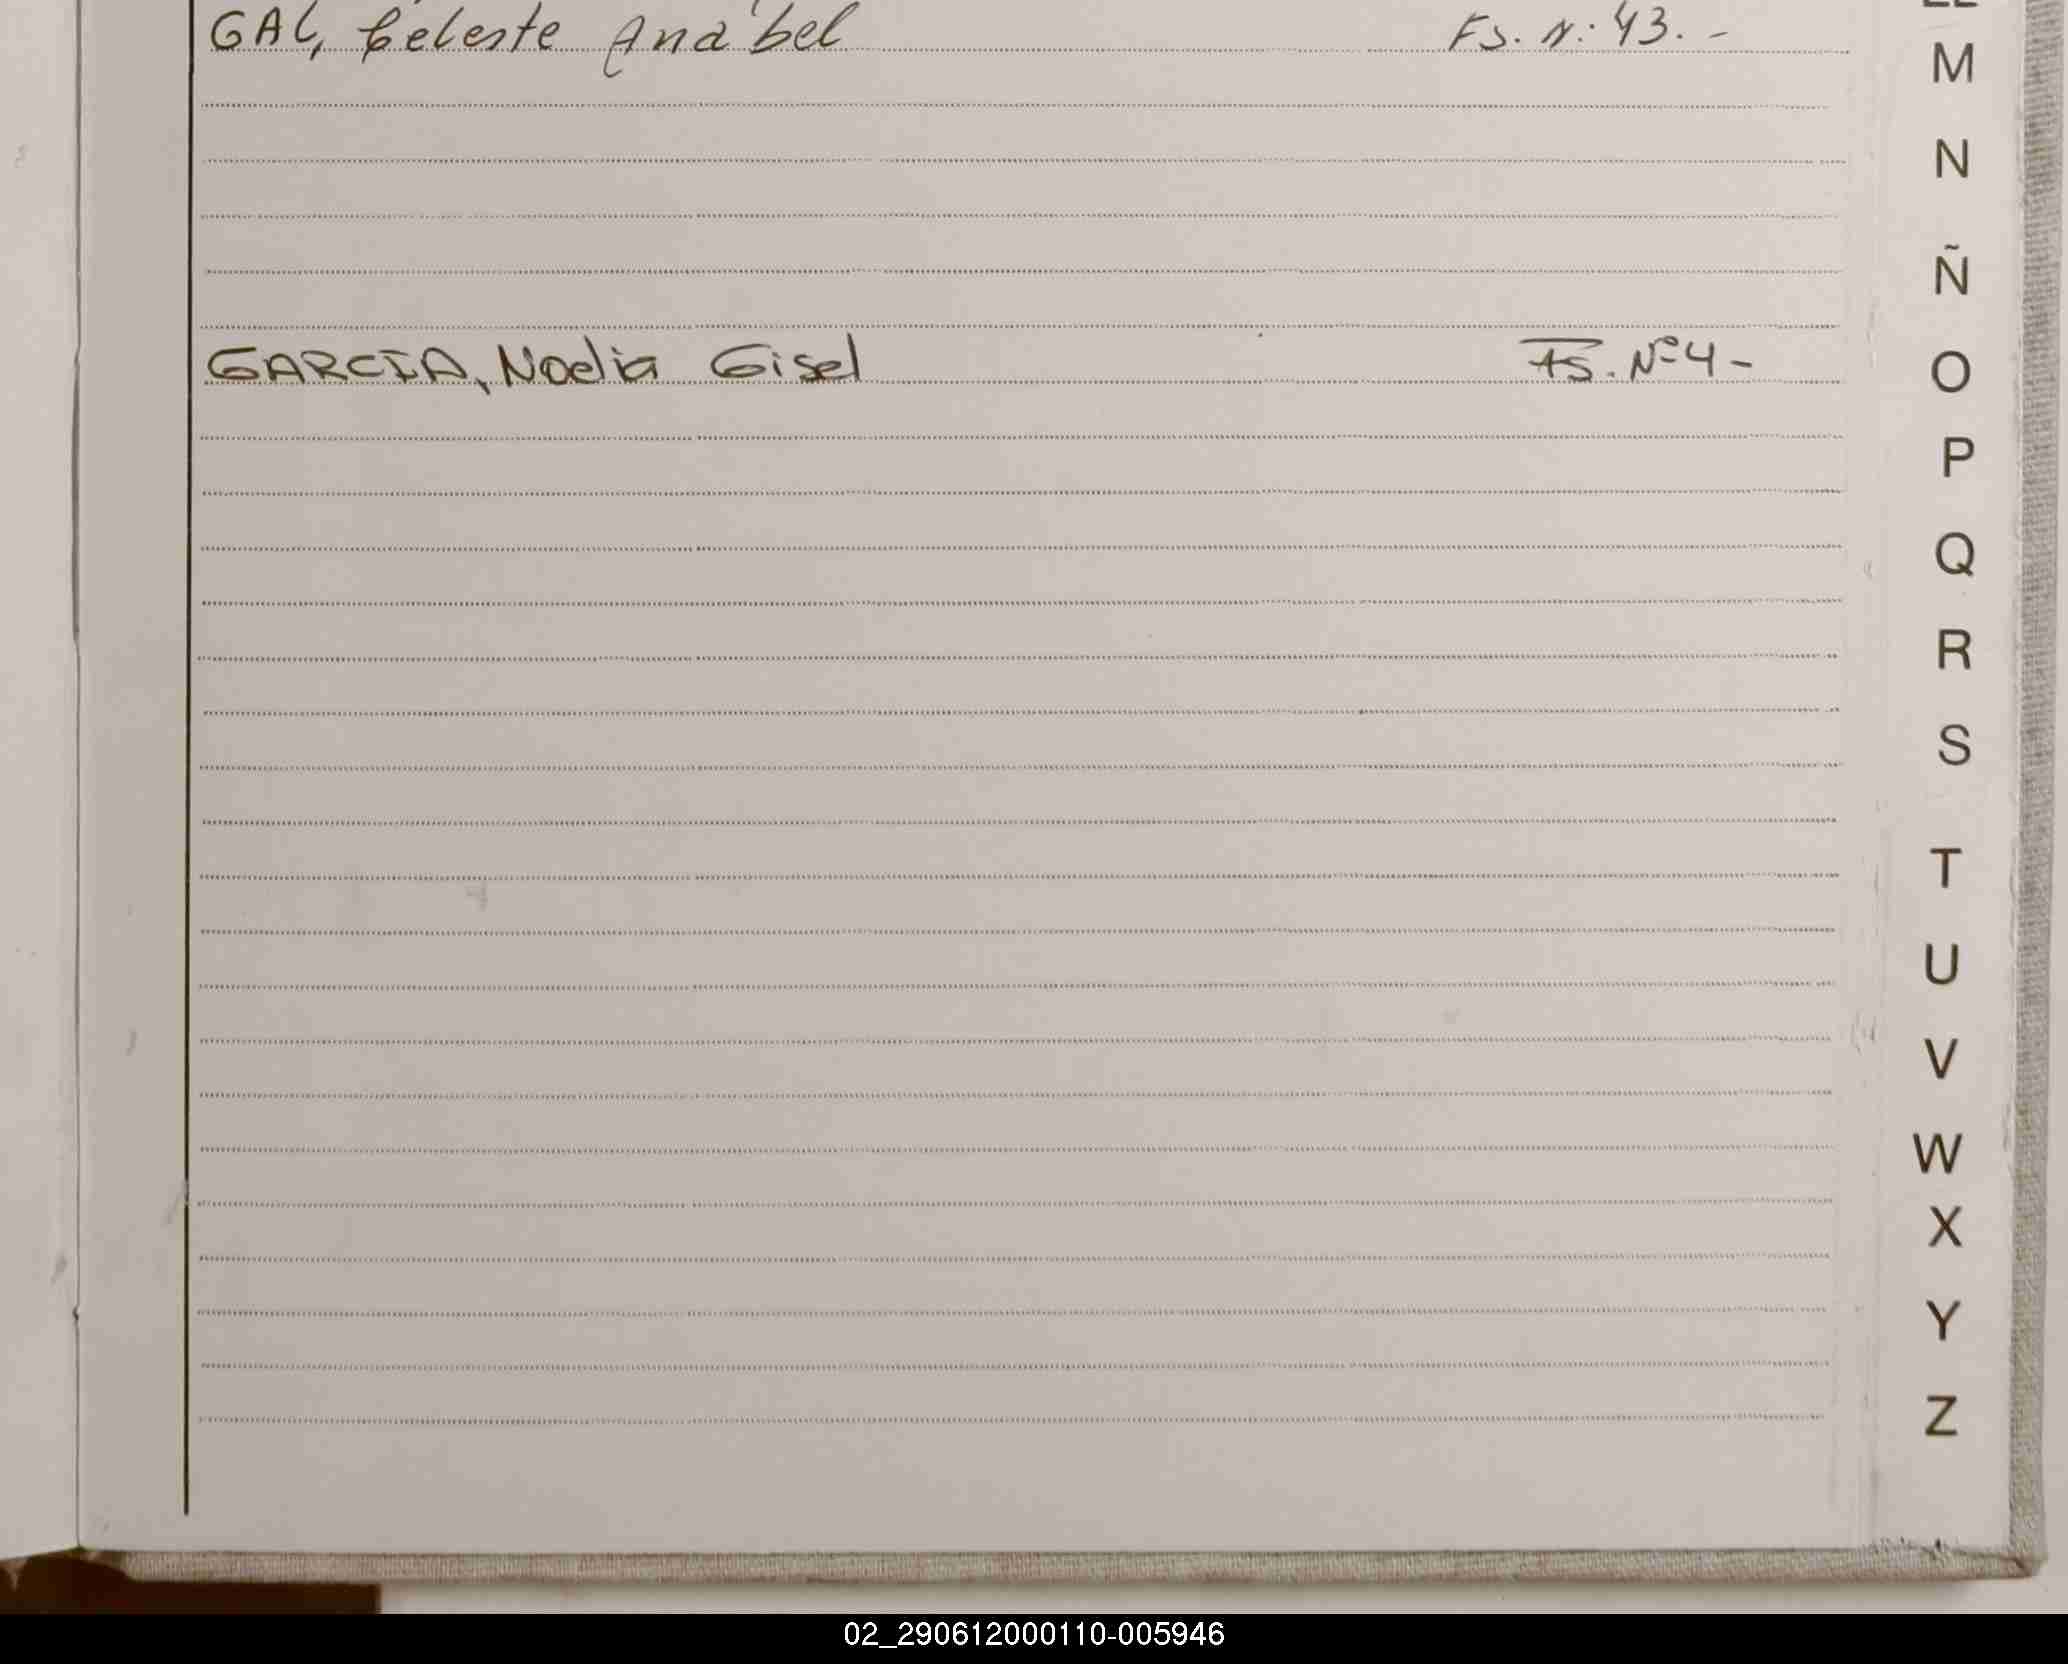 GAL, Celeste Anabel Fs. N.: 43. -
GARCIA, Noelia Gisel Fs. Nº 4 -
M
N
Ñ
O
P
Q
R
S
T
U
V
W
X
Y
Z
02_290612000110-005946